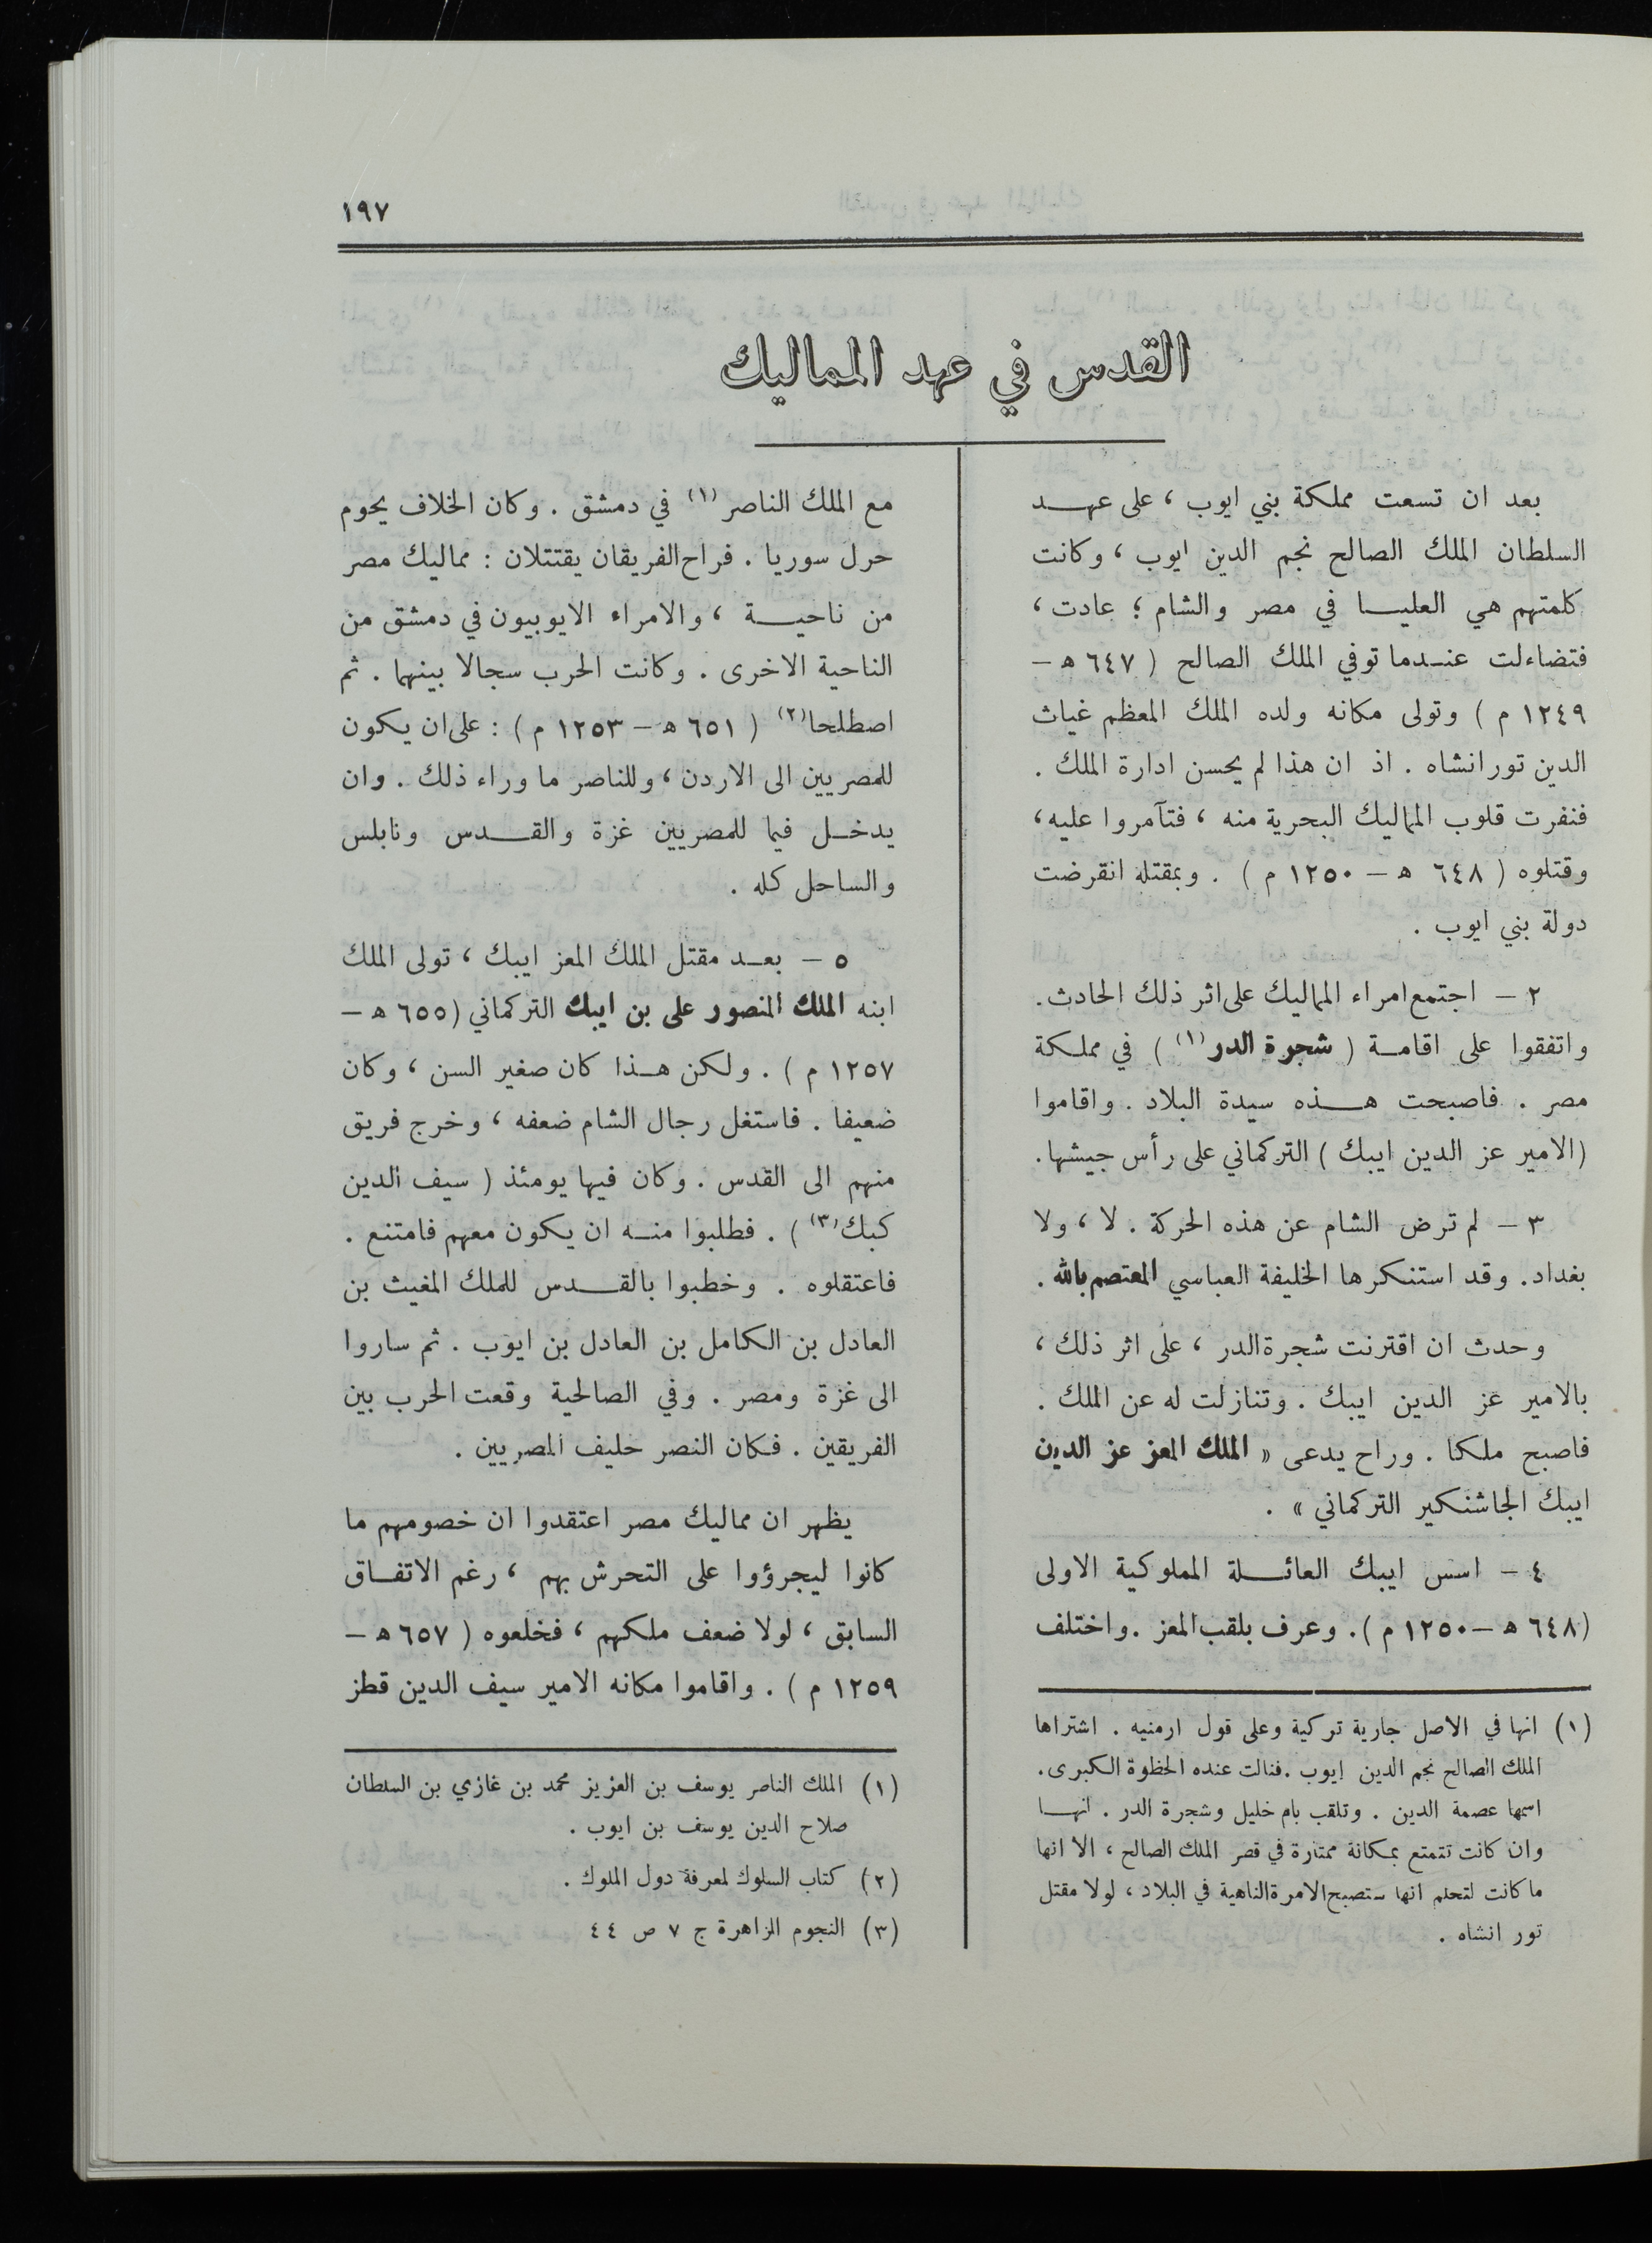 ١٩٧
القدس في عهد المماليك
بعد ان تسعت مملكة بني ايوب ، على عهد
السلطان الملك الصالح نجم الدين ايوب ، وكانت
كلمتهم هي العليا في مصر والشام ؛ عادت ،
فتضاءلت عندما توفي الملك الصالح ( ٦٤٧ ه –
١٢٤٩ م ) وتولى مكانه ولده الملك المعظم غياث
الدين تورانشاه . اذ ان هذا لم يحسن ادارة الملك .
فنفرت قلوب المماليك البحرية منه ، فتآمروا عليه ،
وقتلوه ( ٦٤٨ ه – ١٢٥٠ م ) . وبمقتله انقرضت
دولة بني ايوب .
٢ – اجتمع امراء المماليك على اثر ذلك الحادث .
واتفقوا على اقامة ( شجرة الدر (١) ) في مملكة
مصر . فاصبحت هذه سيدة البلاد . واقاموا
(الامير عز الدين ايبك ) التركماني على رأس جيشها .
٣ – لم ترض الشام عن هذه الحركة . لا ، ولا
بغداد . وقد استنكرها الخليفة العباسي المعتصم بالله .
وحدث ان اقترنت شجرة الدر ، على اثر ذلك ،
بالامير عز الدين ايبك . وتنازلت له عن الملك .
فاصبح ملكا . وراح يدعى « الملك المعز عز الدين
ايبك الجاشنكير التركماني » .
٤ – اسس ايبك العائلة المملوكية الاولى
(٦٤٨ ه – ١٢٥٠ م ) . وعرف بلقب المعز . واختلف
(١) انها في الاصل جارية تركية وعلى قول ارمنيه . اشتراها
الملك الصالح نجم الدين ايوب . فنالت عنده الحظوة الكبرى .
اسمها عصمة الدين . وتلقب بام خليل وشجرة الدر . انها
وان كانت تتمتع بمكانة ممتازة في قصر الملك الصالح ، الا انها
ما كانت لتحلم انها ستصبح الامرة الناهية في البلاد ، لولا مقتل
تور انشاه .
مع الملك الناصر (١) في دمشق . وكان الخلاف يحوم
حرل سوريا . فراح الفريقان يقتتلان : مماليك مصر
من ناحية ، والامراء الايوبيون في دمشق من
الناحية الاخرى . وكانت الحرب سجالا بينهما . ثم
اصطلحا (٢) ( ٦٥١ ه – ١٢٥٣ م ) : على ان يكون
للمصريين الى الاردن ، وللناصر ما وراء ذلك . وان
يدخل فيما للمصريين غزة والقدس ونابلس
والساحل كله .
٥ – بعد مقتل الملك المعز ايبك ، تولى الملك
ابنه الملك المنصور على بن ايبك التركماني (٦٥٥ ه –
١٢٥٧ م ) . ولكن هذا كان صغير السن ، وكان
ضعيفا . فاستغل رجال الشام ضعفه ، وخرج فريق
منهم الى القدس . وكان فيها يومئذ ( سيف الدين
كبك (٣) ) . فطلبوا منه ان يكون معهم فامتنع .
فاعتقلوه . وخطبوا بالقدس للملك المغيث بن
العادل بن الكامل بن العادل بن ايوب . ثم ساروا
الى غزة ومصر . وفي الصالحية وقعت الحرب بين
الفريقين . فكان النصر حليف المصريين .
يظهر ان مماليك مصر اعتقدوا ان خصومهم ما
كانوا ليجرؤوا على التحرش بهم ، رغم الاتفاق
السابق ، لولا ضعف ملكهم ، فخلعوه ( ٦٥٧ ه –
١٢٥٩ م ) . واقاموا مكانه الامير سيف الدين قطز
(١) الملك الناصر يوسف بن العزيز محمد بن غازي بن السلطان
صلاح الدين يوسف بن ايوب .
(٢) كتاب السلوك لمعرفة دول الملوك .
(٣) النجوم الزاهرة ج ٧ ص ٤٤